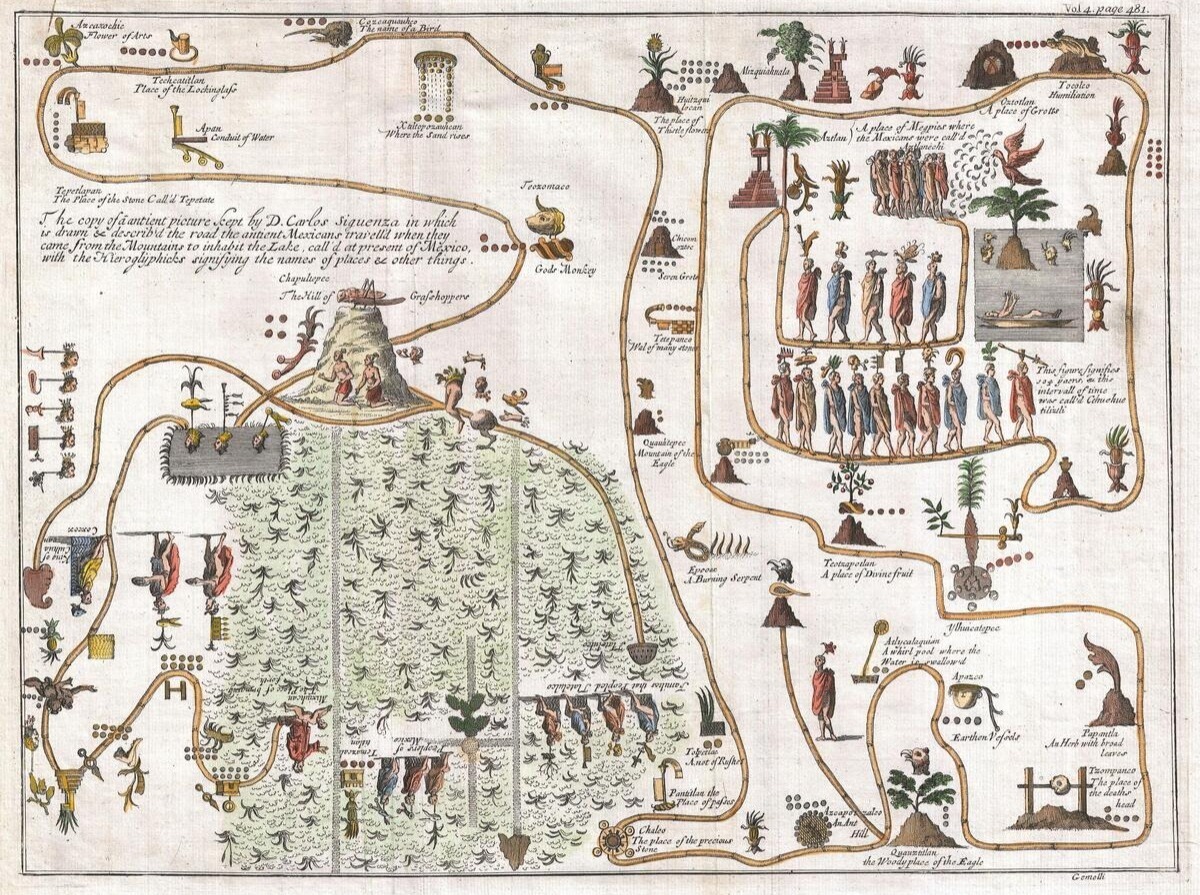 Vol 4. page 481.
Azcaxochic
Flower of Arts
Cozcaquauhco
The name of a Bird
Techcatitlan
Place of the Lockinglass
Apan
Conduit of Water
Xaltepozauhcan
Where the Sand rises
Huitzqui
locan
The place of
Thistle flowers
Mizquiahuala
Oztotlan
A place of Grotts
Tocolco
Humiliation
Aztlan) A place of Megpies where
the Mexicans were call'd
Aztlanechi
Tepetlapan
The Place of the Stone Call'd Tepetate
The copy of a antient picture kept by D. Carlos Siguenza in which
is drawn & describ'd the road the antient Mexicans travell'd when they
came from the Mountains to inhabit the Lake, call'd at present of Mexico,
with the Hieroglyphicks signifying the names of places & other things.
Teozomaco
Gods Monkey
Chapultepec
The Hill of Grashoppers
Chicom
oztoc
Seven Grots
Tetepanco
Wal of many stones
Quauhtepec
Mountain of the
Eagle
This figure signifies
104 years, & this
intervall of time
was call'd
Epcoac
A Burning Serpent
Teotzapotlan
A place of Divine fruit
Ylhuicatepec
Atlycalaquian
A whirl pool where the
Water is swallow'd
Apazco
Earthen Vessels
Papantla
An Herb with broad
leaves
Tzompanco
The place of
the deaths
head
Colhuacan
King of
Cocox
Tolpetlac
A not of Rushes
Pantitlan the
Place of
Chalco
The place of the precious
Stone
Azcapotzalco
An Ant
Hill
Quauztitlan
the Woody place of the Eagle
Families that Peopled Tlatelolco
People of
Mexico
Gemelli